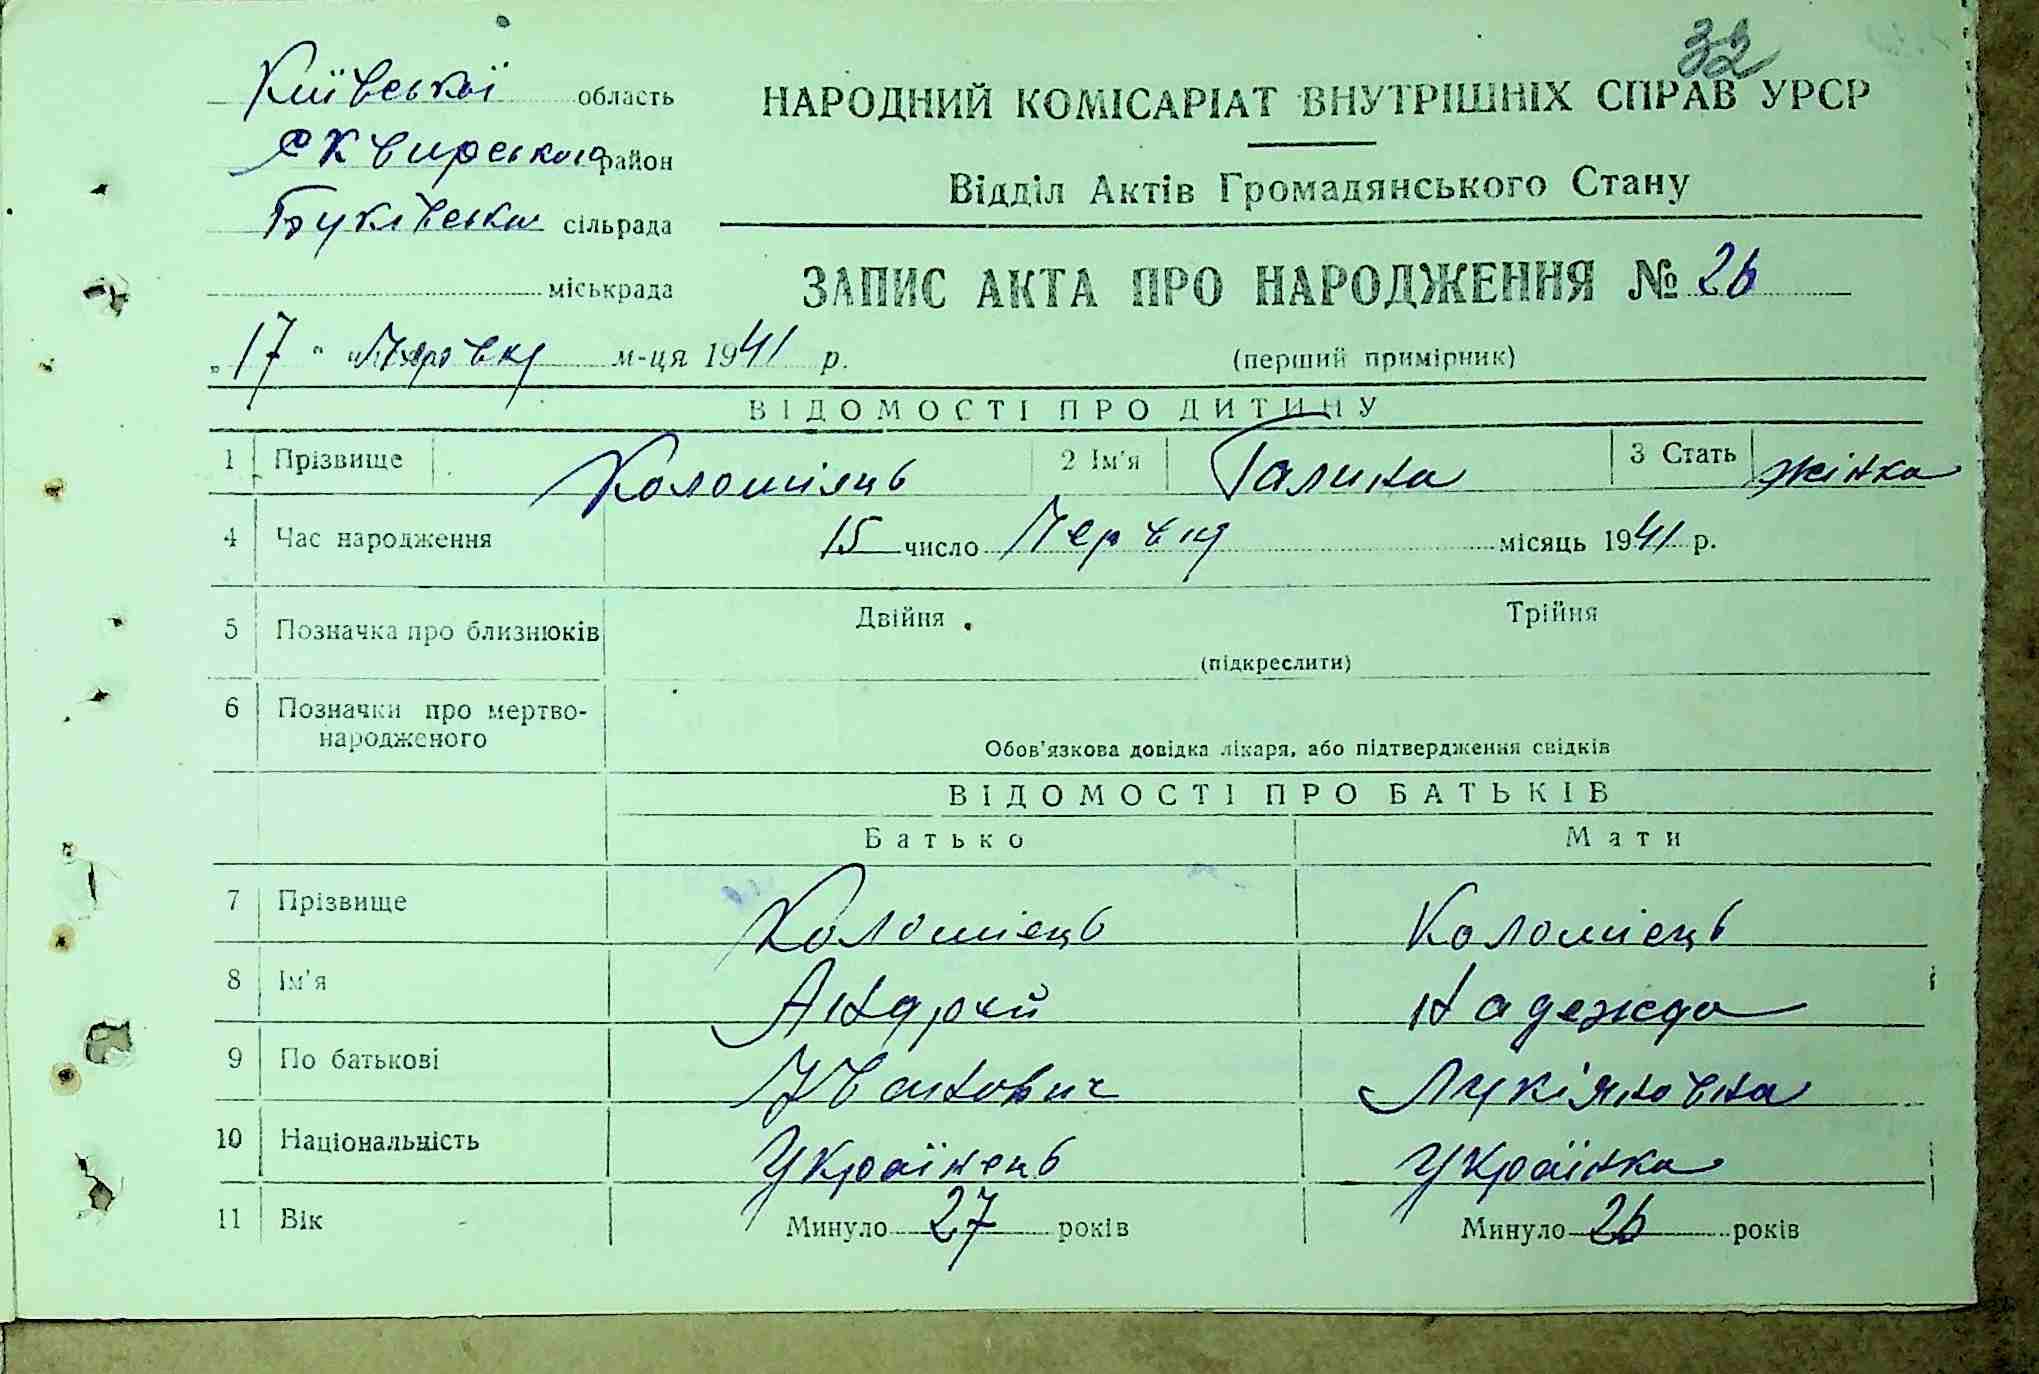 32
Київської область
Сквирського район
Буківська сільрада
міськрада
НАРОДНИЙ КОМІСАРІАТ ВНУТРІШНІХ СПРАВ УРСР
Відділ Актів Громадянського Стану
ЗАПИС АКТА ПРО НАРОДЖЕННЯ № 26
„17" червня м-ця 1941 р.
(перший примірник)
ВІДОМОСТІ ПРО ДИТИНУ
1 Прізвище Коломіяць 2 Ім'я Галина 3 Стать жінка
4 Час народження 15 число Червня місяць 1941 р.
5 Позначка про близнюків Двійня Трійня
(підкреслити)
6 Позначки про мертво-
народженого
Обов'язкова довідка лікаря, або підтвердження свідків
ВІДОМОСТІ ПРО БАТЬКІВ
Батько Мати
7 Прізвище Коломієць Коломієць
8 Ім'я Андрей Надежда
9 По батькові Іванович Лукіяновна
10 Національність Українець Українка
11 Вік Минуло 27 років Минуло 26 років